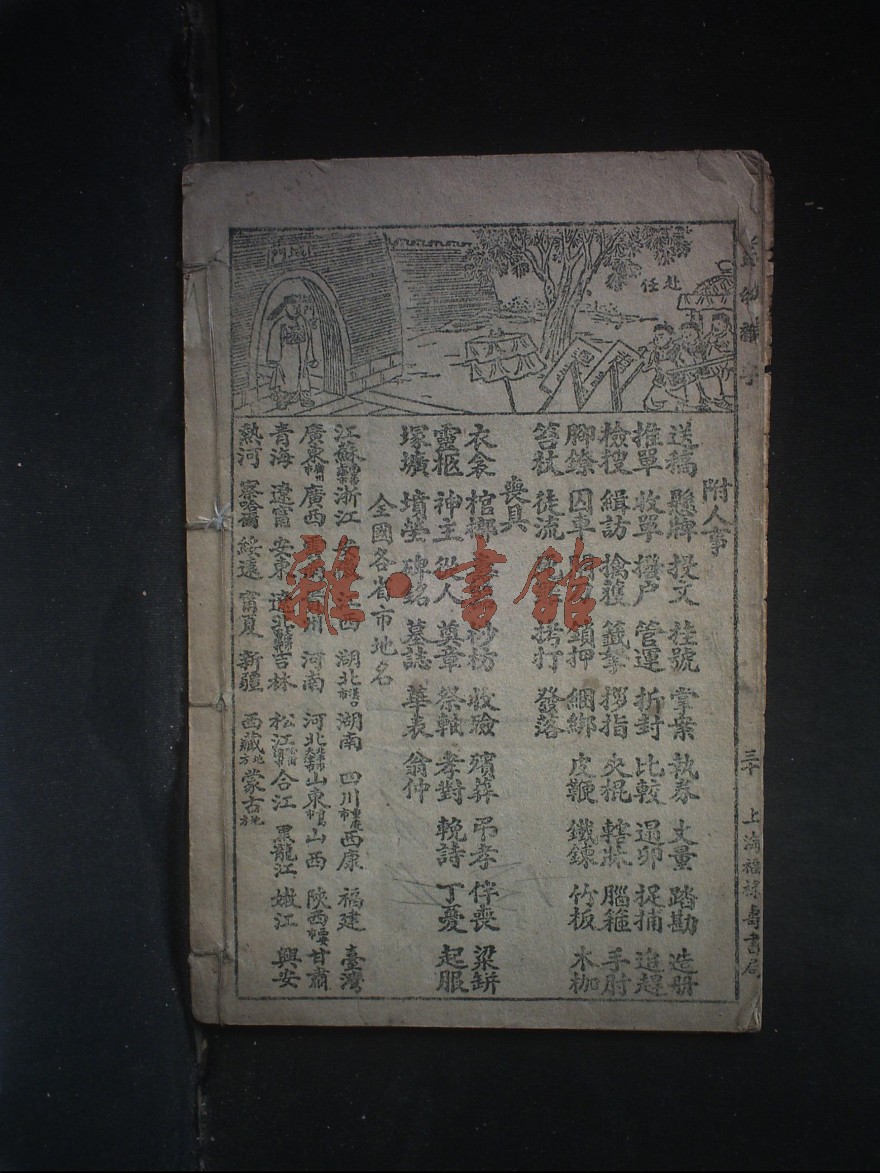 赴任
附人事
送稿 懸牌 投文 掛號 掌案 執券 丈量 踏勘 造册
推單 收單 撥户 管運 折封 比較 過卯 捉捕 追趕
檢搜 緝訪 擒獲 籤拏 拶指 夾棍 轄牀 腦箍 手肘
腳鐐 囚車 鎖押 綑綁 皮鞭 鐵鍊 竹板 木枷
笞杖 徒流 拷打 發落
喪具
衣衾 棺槨 砂枋 收殮 殯葬 弔孝 伴喪 粱缾
靈柩 神主 從人 奠章 祭軸 孝對 輓詩 丁憂 起服
塚壙 墳塋 碑銘 墓誌 華表 翁仲
全國各省市地名
江蘇 浙江 西 湖北 湖南 四川 西康 福建 臺灣
廣東 廣西 州 河南 河北 山東 山西 陝西 甘肅
青海 遼寗 安東 遼北 吉林 松江 合江 黑龍江 嫩江 興安
熱河 察哈爾 綏遠 甯夏 新疆 西藏地方 蒙古地方
三十
上海福祿壽書局
雜·書館